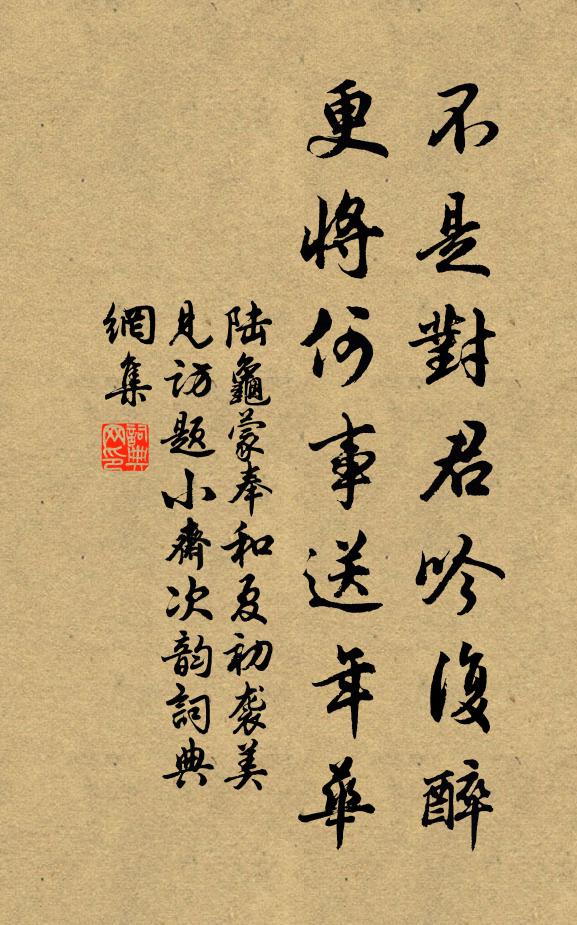 不是對君吟復醉
更將何事送年華
陸龜蒙奉和夏初袭美
見訪題小齋次韵詞典
網集
詞典
网印